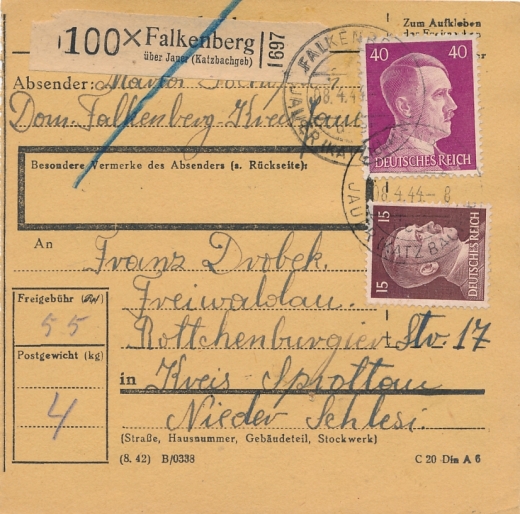 Zum Aufkleben
der Freimarken
100 × Falkenberg
über Jauer (Katzbachgeb)
1697
Absender: Maria
Dom. Falkenberg Kreis Jauer
Besondere Vermerke des Absenders (s. Rückseite):
FALKENBERG
8.4.44
JAUER (KATZBACH
40 40
DEUTSCHES REICH
8.4.44-8
15 15
DEUTSCHES REICH
An
Franz Drobek.
Freiwaldau.
Rottchenburgier Str. 17
in Kreis Sprottau
Nieder Schlesi.
Freigebühr
55
Postgewicht (kg)
4
(Straße, Hausnummer, Gebäudeteil, Stockwerk)
(8. 42) B/0338
C 20 Din A 6